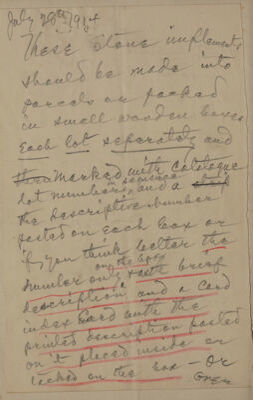 July 28th 1914
These stone implements
should be made into
parcels or packed
in small wooden boxes
Each lot separately and
marked with Catalogue
lot numbers in sequence and a
the descriptive number
pasted on each box or
if you think better the
number only on the box with brief
description and a card
index card with the
printed description pasted
on it placed inside or
tacked on the box - or
over